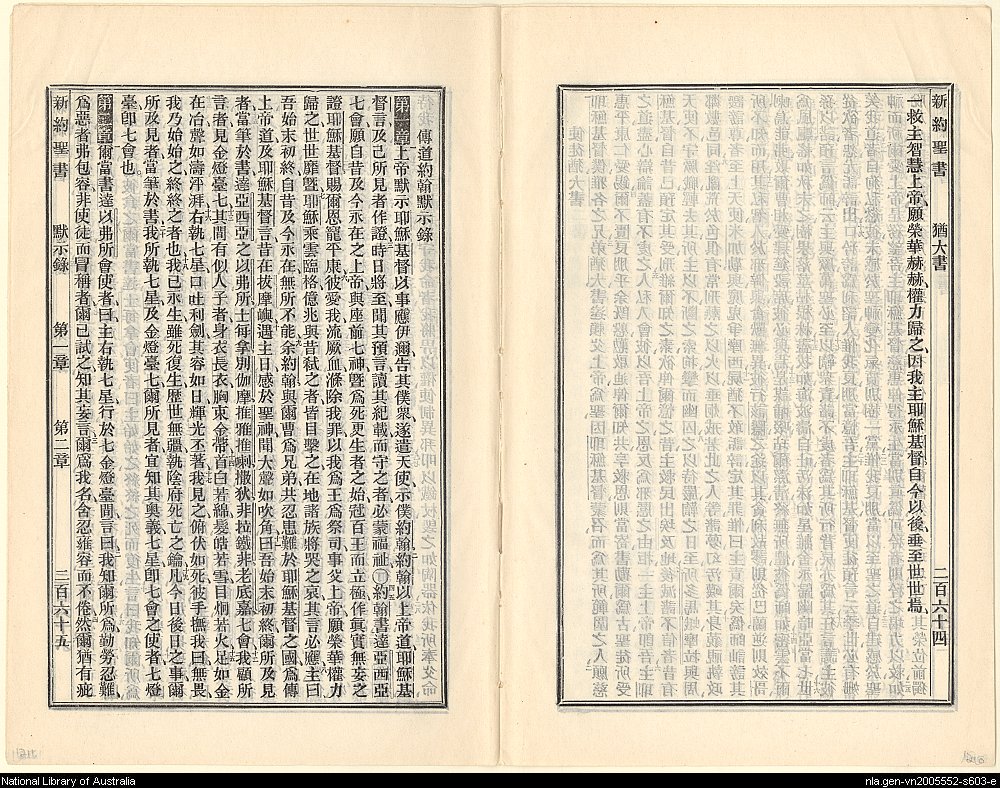 新約聖書 猶大書 二百六十四
一救主智慧上帝願榮華赫赫權力歸之因我主耶穌基督自今以後垂至世世焉
傳道約翰默示錄
第一章上帝默示耶穌基督以事應伊邇告其僕眾遂遣天使示僕約翰約翰以上帝道耶穌基
督言及己所見者作證時日將至聞其預言讀其紀載而守之者必蒙福祉○約翰書達亞西亞
七會願自昔及今永在之上帝與座前七神暨為死更生者之始冠百王而立極作真實無妄之
證耶穌基督賜爾恩寵平康彼愛我流厥血滌除我罪以我為王為祭司事父上帝願榮華權力
歸之世世靡暨耶穌乘雲臨格億兆與昔弒之者皆目擊之在地諸族將哭之哀其言必應主曰
吾始末初終自昔及今永在無所不能余約翰與爾曹為兄弟共忍患難於耶穌基督之國為傳
上帝道及耶穌基督言昔在拔摩嶼遇主日感於聖神聞大聲如吹角曰吾始末初終爾所及見
者當筆於書達亞西亞之以弗所士每拿別伽摩推雅推喇撒狄非拉鐵非老底嘉七會我顧所
言者見金燈臺七其間有似人子者身衣長衣胸束金帶首白若綿髮皓若雪目炯若火足如金
在冶聲如濤泙湃右執七星口吐利劍其容如日輝光丕著我見之俯伏如死彼手撫我曰無畏
我乃始始之終終之者也我已永生雖死復生歷世無疆執陰府死亡之鑰凡今日後日之事爾
所及見者當筆於書我所執七星及金燈臺七爾所見者宜知其奧義七星即七會之使者七燈
臺即七會也
第二章爾當書達以弗所會使者曰主右執七星行於七金燈臺間言曰我知爾所為勤勞忍難
為惡者弗包容非使徒而冒稱者爾已試之知其妄言爾為我名含忍雍容而不倦然爾猶有疵
新約聖書 默示錄 第一章 第二章 二百六十五
National Library of Australia
nla.gen-vn2005552-s603-e